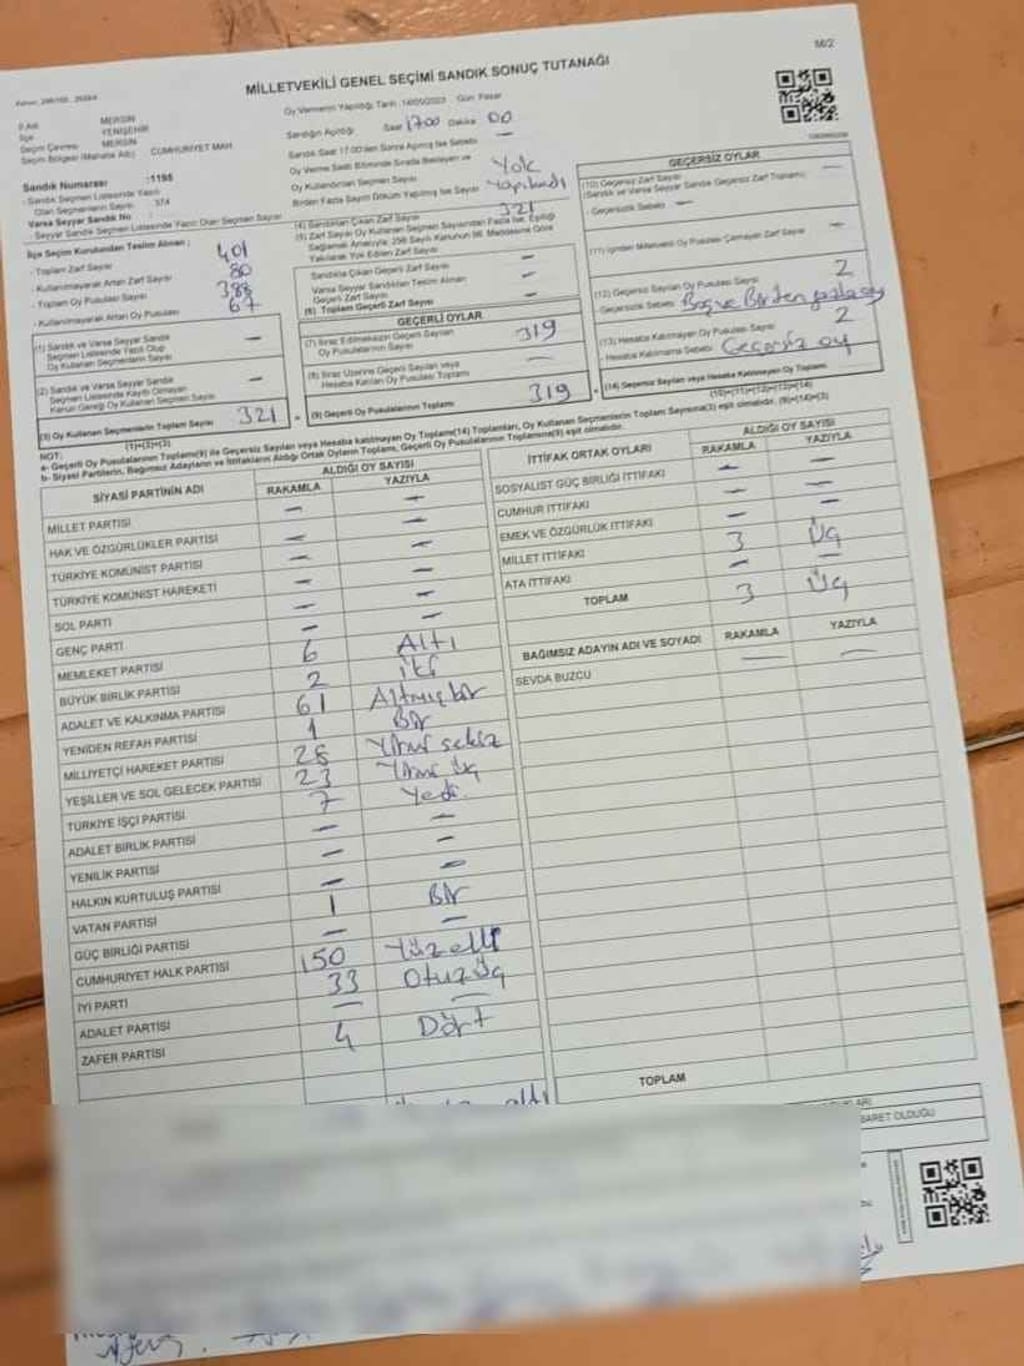 56/2
MİLLETVEKİLİ GENEL SEÇİMİ SANDIK SONUÇ TUTANAĞI
Oy Vermenin Yapıldığı Tarih :14/05/2023 Gün: Pazar
Sandığın Açıldığı Saat 17:00 Dakika 00
Sandık Saat 17:00'den Sonra Açılmış İse Sebebi: —
Oy Verme Saati Bitiminde Sırada Bekleyen ve
Oy Kullandırılan Seçmen Sayısı Yok
Birden Fazla Sayım Döküm Yapılmış İse Sayısı Yapılmadı
İli MERSİN
İlçe YENİŞEHİR
Seçim Çevresi MERSİN
Seçim Bölgesi (Mahalle Adı) CUMHURİYET MAH.
Sandık Numarası :1198
- Sandık Seçmen Listesinde Yazılı
Olan Seçmenlerin Sayısı 374
Varsa Seyyar Sandık No
- Seyyar Sandık Seçmen Listesinde Yazılı Olan Seçmen Sayısı
İlçe Seçim Kurulundan Teslim Alınan ;
- Toplam Zarf Sayısı 401
- Kullanılmayarak Artan Zarf Sayısı 80
- Toplam Oy Pusulası Sayısı 388
- Kullanılmayarak Artan Oy Pusulası 67
(1) Sandık ve Varsa Seyyar Sandık
Seçmen Listesinde Yazılı Olup
Oy Kullanan Seçmenlerin Sayısı —
(2) Sandık ve Varsa Seyyar Sandık
Seçmen Listesinde Kayıtlı Olmayan
Kanun Gereği Oy Kullanan Seçmen Sayısı —
(3) Oy Kullanan Seçmenlerin Toplam Sayısı 321
(1)+(2)=(3)
(4) Sandıktan Çıkan Zarf Sayısı 321
(5) Zarf Sayısı Oy Kullanan Seçmen Sayısından Fazla İse, Eşitliği
Sağlamak Amacıyla; 298 Sayılı Kanunun 98. Maddesine Göre
Yakılarak Yok Edilen Zarf Sayısı —
Sandıkta Çıkan Geçerli Zarf Sayısı —
Varsa Seyyar Sandıktan Teslim Alınan
Geçerli Zarf Sayısı —
(6) Toplam Geçerli Zarf Sayısı —
GEÇERLİ OYLAR
(7) İtiraz Edilmeksizin Geçerli Sayılan
Oy Pusulalarının Sayısı 319
(8) İtiraz Üzerine Geçerli Sayılan veya
Hesaba Katılan Oy Pusulası Toplamı —
(9) Geçerli Oy Pusulalarının Toplamı 319
GEÇERSİZ OYLAR
(10) Geçersiz Zarf Sayısı
(Sandık ve Varsa Seyyar Sandık Geçersiz Zarf Toplamı) —
- Geçersizlik Sebebi —
(11) İçinden Milletvekili Oy Pusulası Çıkmayan Zarf Sayısı —
(12) Geçersiz Sayılan Oy Pusulası Sayısı 2
- Geçersizlik Sebebi Boş ve Birden fazla oy
(13) Hesaba Katılmayan Oy Pusulası Sayısı 2
- Hesaba Katılmama Sebebi Geçersiz oy
(14) Geçersiz Sayılan veya Hesaba Katılmayan Oy Toplamı
(10)+(11)+(12)+(13)=(14)
NOT:
a- Geçerli Oy Pusulalarının Toplamı(9) ile Geçersiz Sayılan veya Hesaba katılmayan Oy Toplamı(14) Toplamları, Oy Kullanan Seçmenlerin Toplam Sayısına(3) eşit olmalıdır. (9)+(14)=(3)
b- Siyasi Partilerin, Bağımsız Adayların ve İttifakların Aldığı Ortak Oyların Toplamı, Geçerli Oy Pusulalarının Toplamına(9) eşit olmalıdır.
SİYASİ PARTİNİN ADI ALDIĞI OY SAYISI
RAKAMLA YAZIYLA
MİLLET PARTİSİ — —
HAK VE ÖZGÜRLÜKLER PARTİSİ — —
TÜRKİYE KOMÜNİST PARTİSİ — —
TÜRKİYE KOMÜNİST HAREKETİ — —
SOL PARTİ — —
GENÇ PARTİ — —
MEMLEKET PARTİSİ 6 Altı
BÜYÜK BİRLİK PARTİSİ 2 iki
ADALET VE KALKINMA PARTİSİ 61 Altmış bir
YENİDEN REFAH PARTİSİ 1 Bir
MİLLİYETÇİ HAREKET PARTİSİ 28 Yirmi sekiz
YEŞİLLER VE SOL GELECEK PARTİSİ 23 Yirmi üç
TÜRKİYE İŞÇİ PARTİSİ 7 Yedi
ADALET BİRLİK PARTİSİ — —
YENİLİK PARTİSİ — —
HALKIN KURTULUŞ PARTİSİ — —
VATAN PARTİSİ 1 Bir
GÜÇ BİRLİĞİ PARTİSİ — —
CUMHURİYET HALK PARTİSİ 150 Yüzelli
İYİ PARTİ 33 Otuz üç
ADALET PARTİSİ — —
ZAFER PARTİSİ 4 Dört
İTTİFAK ORTAK OYLARI ALDIĞI OY SAYISI
RAKAMLA YAZIYLA
SOSYALİST GÜÇ BİRLİĞİ İTTİFAKI — —
CUMHUR İTTİFAKI — —
EMEK VE ÖZGÜRLÜK İTTİFAKI — —
MİLLET İTTİFAKI 3 Üç
ATA İTTİFAKI — —
TOPLAM 3 Üç
BAĞIMSIZ ADAYIN ADI VE SOYADI RAKAMLA YAZIYLA
SEVDA BUZCU — —
TOPLAM